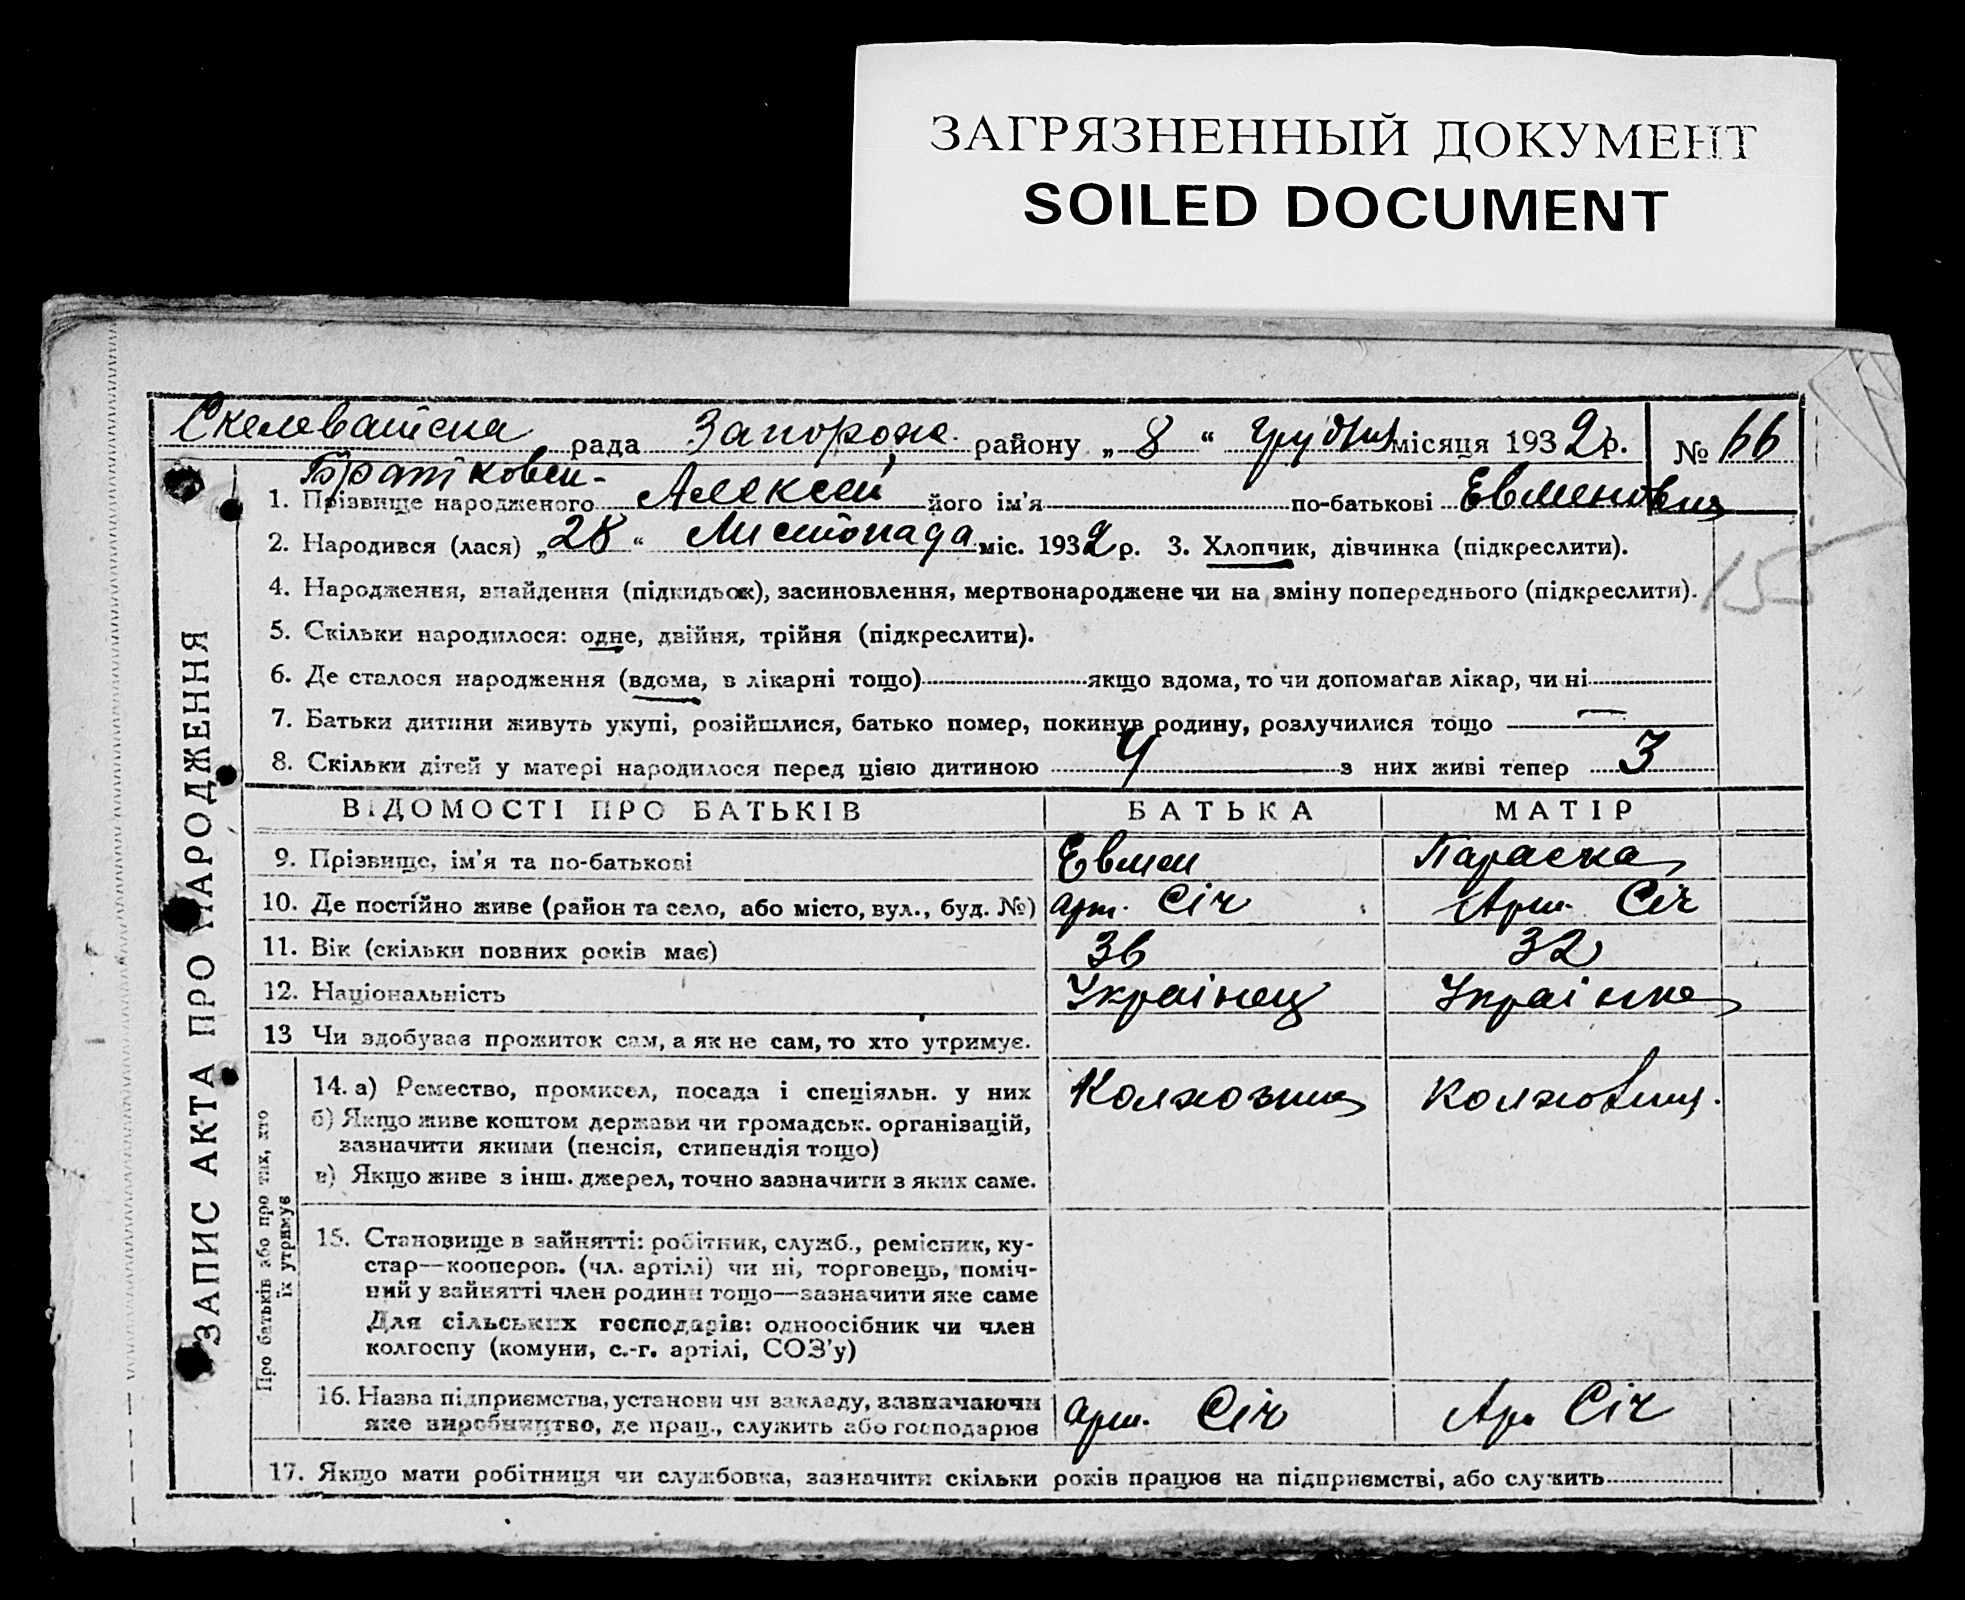 ЗАГРЯЗНЕННЫЙ ДОКУМЕНТ
SOILED DOCUMENT
рада Запорож. району „8“ Грудня місяця 1932 р. № 66
1. Прізвище народженого Алексей його ім'я по-батькові Евменович
2. Народився (лася) „28“ Листопада міс. 1932 р. 3. Хлопчик, дівчинка (підкреслити).
15
4. Народження, знайдення (підкидьок), засиновлення, мертвонароджене чи на зміну попереднього (підкреслити).
5. Скільки народилося: одне, двійня, трійня (підкреслити).
6. Де сталося народження (вдома, в лікарні тощо) якщо вдома, то чи допомагав лікар, чи ні
7. Батьки дитини живуть укупі, розійшлися, батько помер, покинув родину, розлучилися тощо —
8. Скільки дітей у матері народилося перед цією дитиною 4 з них живі тепер 3
ВІДОМОСТІ ПРО БАТЬКІВ БАТЬКА МАТІР
9. Прізвище, ім'я та по-батькові Евмен Параска
10. Де постійно живе (район та село, або місто, вул., буд. №) арт. Січ Арт. Січ
11. Вік (скільки повних років має) 36 32
12. Національність Українец Українка
13 Чи здобуває прожиток сам, а як не сам, то хто утримує.
14. а) Ремество, промисел, посада і спеціяльн. у них Колхозник колхозниц.
б) Якщо живе коштом держави чи громадськ. організацій,
зазначити якими (пенсія, стипендія тощо)
в) Якщо живе з інш. джерел, точно зазначити з яких саме.
15. Становище в зайнятті: робітник, служб., ремісник, ку-
стар—кооперов. (чл. артілі) чи ні, торговець, поміч-
ний у зайнятті член родини тощо—зазначити яке саме
Для сільських господарів: одноосібник чи член
колгоспу (комуни, с.-г. артілі, СОЗ'у)
16. Назва підприємства, установи чи закладу, зазначаючи
яке виробництво, де прац., служить або господарює арт. Січ Ар. Січ
17. Якщо мати робітниця чи службовка, зазначити скільки років працює на підприємстві, або служить
ЗАПИС АКТА ПРО НАРОДЖЕННЯ
Про батьків або про тих, хто
їх утримує